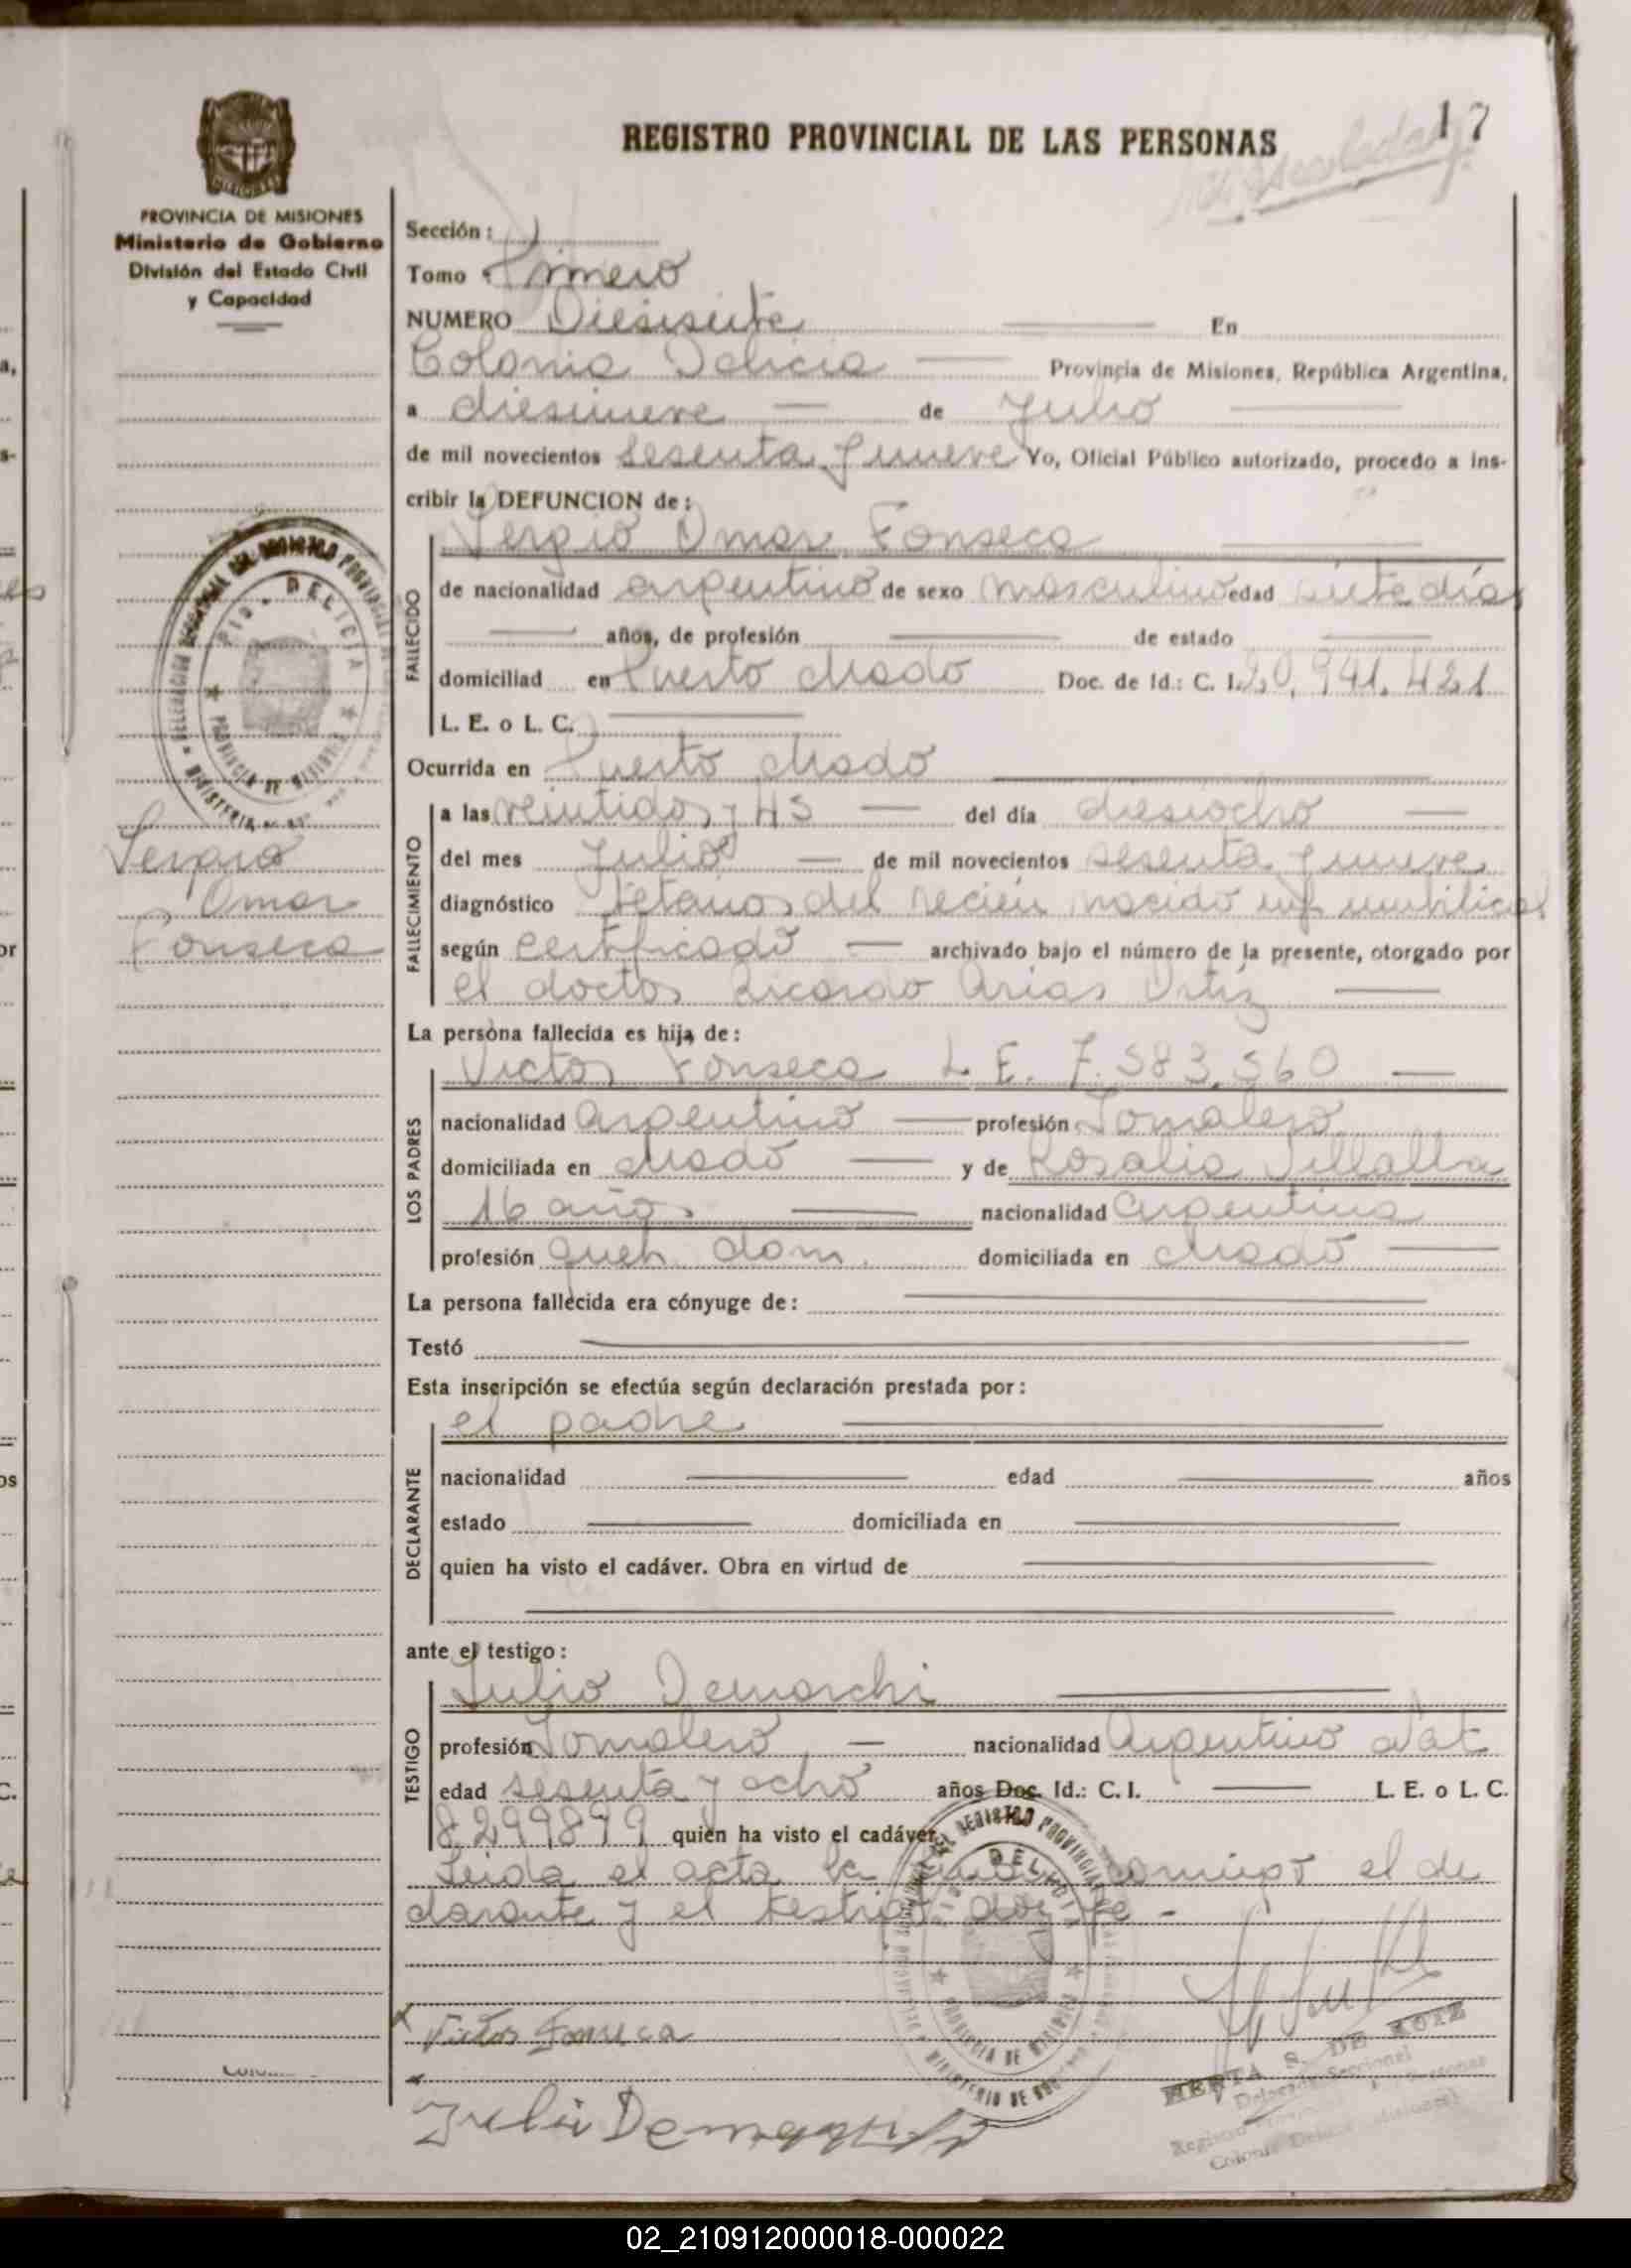 17
REGISTRO PROVINCIAL DE LAS PERSONAS
PROVINCIA DE MISIONES
Ministerio de Gobierno
División del Estado Civil
y Capacidad
Sección:
Tomo Primero
NUMERO Diesisiete En
Colonia Delicia Provincia de Misiones, República Argentina,
a diesinueve de Julio
de mil novecientos sesenta y nueve Yo, Oficial Público autorizado, procedo a ins-
cribir la DEFUNCION de:
Sergio Omar Fonseca
FALLECIDO
de nacionalidad argentino de sexo masculino edad siete días
años, de profesión de estado
domiciliad en Puerto Mado Doc. de Id.: C. I. 20,941.421
L. E. o L. C.
Ocurrida en Puerto Mado
FALLECIMIENTO
a las veintidos y 45 del día diesiocho
del mes Julio de mil novecientos sesenta y nueve
diagnóstico tétanos del recién nacido inf umbilical
según certificado archivado bajo el número de la presente, otorgado por
el doctor Ricardo Arias Ortiz
Sergio
Omar
Fonseca
La persona fallecida es hija de:
LOS PADRES
Victor Fonseca L. E. 7.583.560
nacionalidad argentino profesión Jornalero
domiciliada en Mado y de Rosalia Villalba
16 años nacionalidad argentina
profesión queh. dom. domiciliada en Mado
La persona fallecida era cónyuge de:
Testó
Esta inscripción se efectúa según declaración prestada por:
el padre
DECLARANTE
nacionalidad edad años
estado domiciliada en
quien ha visto el cadáver. Obra en virtud de
ante el testigo:
TESTIGO
Julio Demarchi
profesión Jornalero nacionalidad Argentino Nat
edad sesenta y ocho años Doc. Id.: C. I. L. E. o L. C.
8299899 quien ha visto el cadáver.
Leida el acta la conmigo el de
clarante y el testigo doy fe -
Victor Fonseca
Julio
HERTA S. DE
Delegada Seccional
02_210912000018-000022